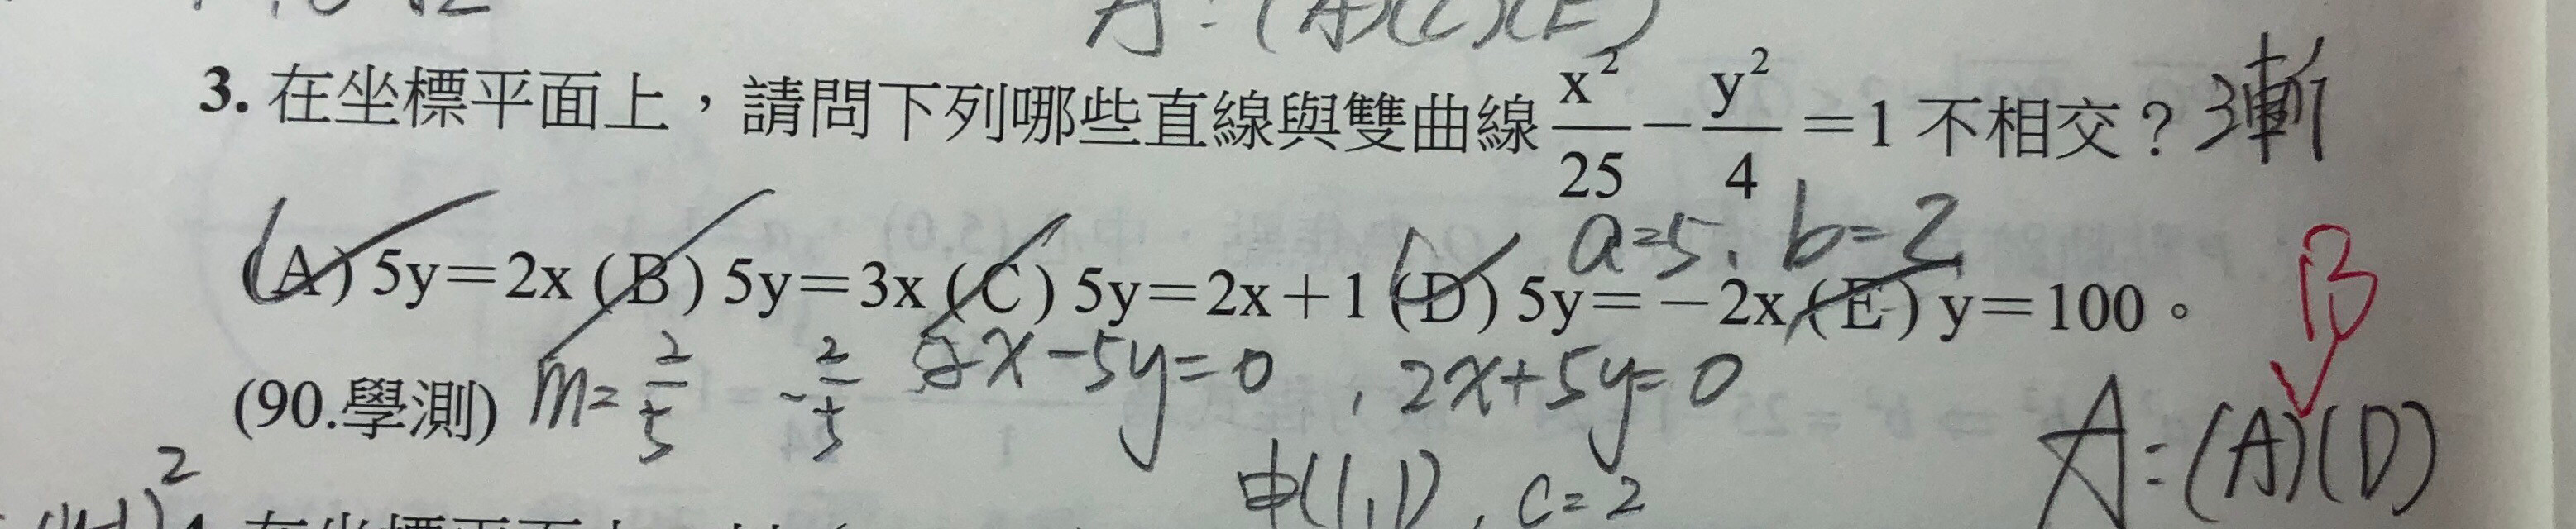 A:(A)(C)(E)
3. 在坐標平面上，請問下列哪些直線與雙曲線 x²/25 − y²/4 = 1 不相交？漸
a=5, b=2
(A) 5y=2x (B) 5y=3x (C) 5y=2x+1 (D) 5y=−2x (E) y=100。
B
(90.學測) m=2/5 -2/5 2x-5y=0, 2x+5y=0
A:(A)(D)
中(1,1), c=2